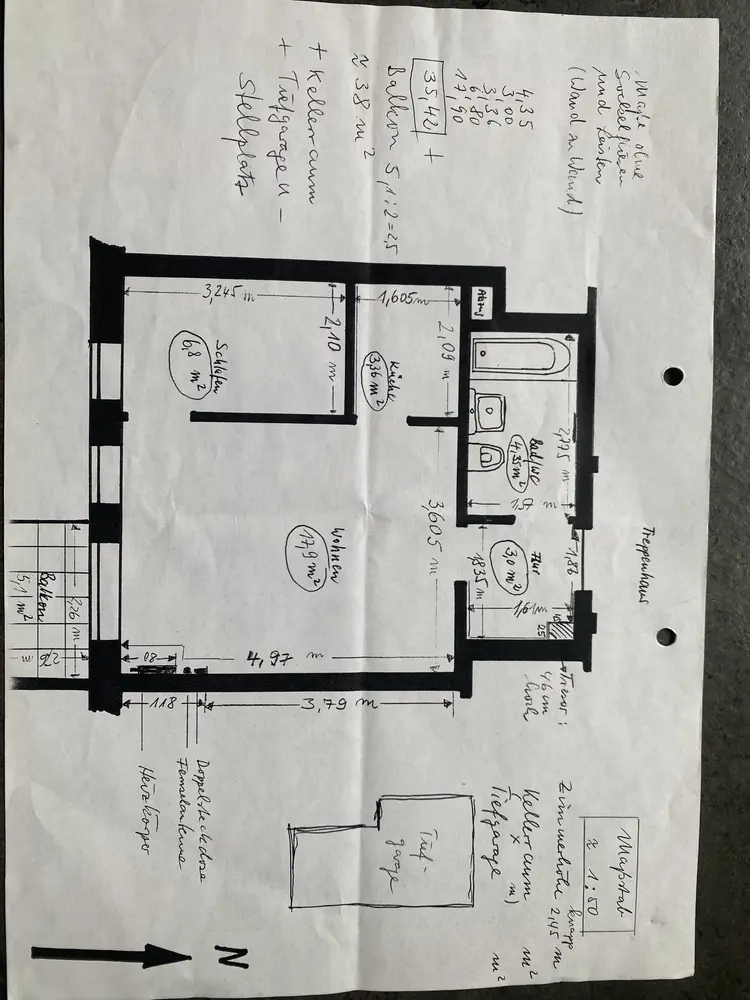 Maße ohne
Sockelfliesen
und Leisten
(Wand zu Wand)
4,35
3,00
3,36
6,80
17,90
35,42 +
Balkon 5,1:2=2,5
≈ 38 m²
+ Kellerraum
+ Tiefgaragen-
Stellplatz
Treppenhaus
Abzug
3,245 m
1,605 m
2,10 m
2,09 m
Schlafen
6,8 m²
Küche
3,36 m²
Bad/WC
4,35 m²
2,775 m
1,57 m
Flur
3,0 m²
1,86
1,835 m
1,61 m
25
Wohnen
17,9 m²
3,605 m
4,97 m
80
118
3,79 m
Balkon
5,1 m²
2,26 m
2,26 m
Tresor:
46 cm
hoch
Doppelsteckdose
Fernsehantenne
Heizkörper
Maßstab
≈ 1:50
Zimmerhöhe knapp 2,45 m
Kellerraum m²
x m)
Tiefgarage m²
Tief-
garage
N